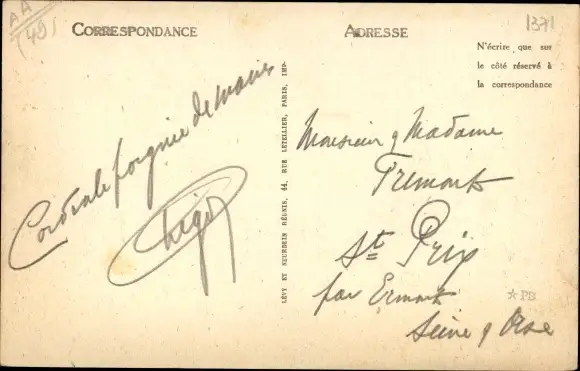 AA
(49)
CORRESPONDANCE
Cordiale poignée de mains
LÉVY ET NEURDEIN RÉUNIS, 44, RUE LETELLIER, PARIS, IMP.
ADRESSE
1371
N'écrire que sur
le côté réservé à
la correspondance
Monsieur & Madame
Fremont
St Prix
par Ermont
Seine & Oise
☆ PB